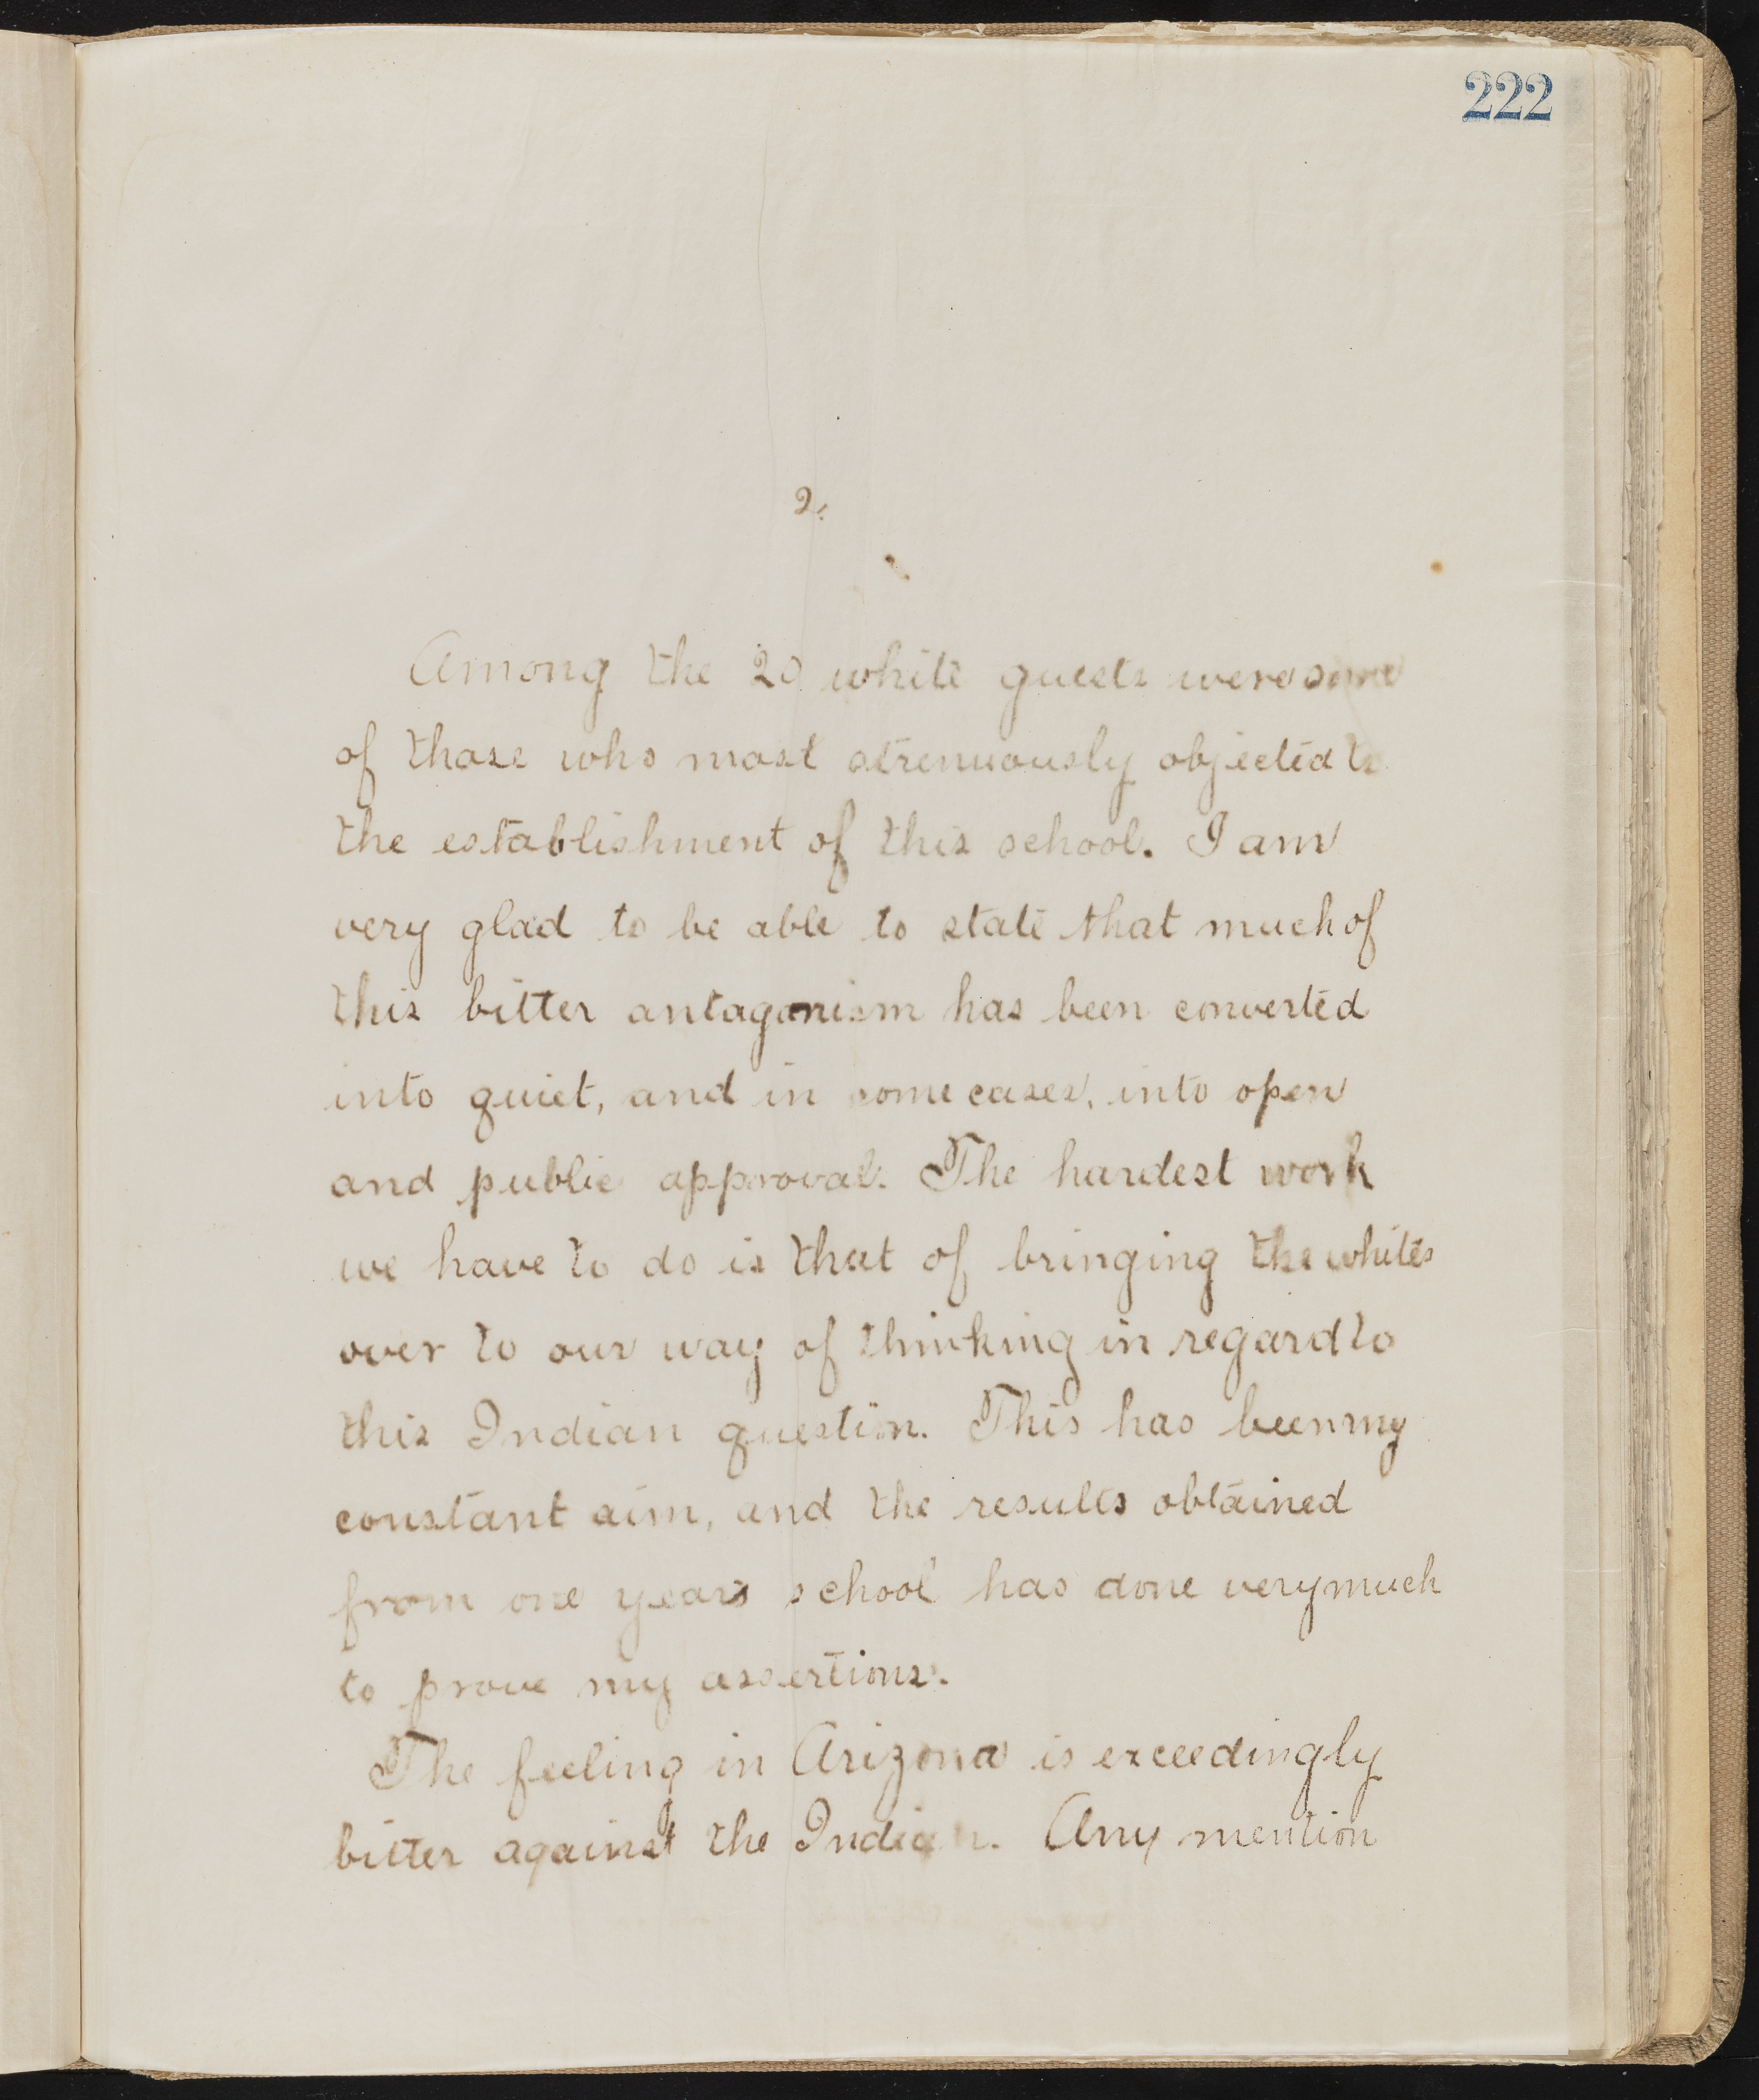 222
2.
Among the 20 white guests were some
of those who most strenuously objected to
the establishment of this school. I am
very glad to be able to state that much of
this bitter antagonism has been converted
into quiet, and in some cases, into open
and public approval. The hardest work
we have to do is that of bringing the whites
over to our way of thinking in regard to
this Indian question. This has been my
constant aim, and the results obtained
from one years school has done very much
to prove my assertions.
The feeling in Arizona is exceedingly
bitter against the Indian. Any mention